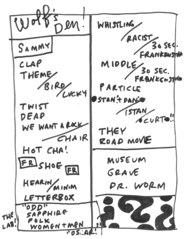 Wolf's Den!
SAMMY
CLAP
THEME/
BIRD/
LUCKY
TWIST
DEAD
WE WANT A ROCK/
CHAIR
HOT CHA!
FR SHOE FR
HEARIN'/
MINIM
LETTERBOX
"ODD"
SAPPHIRE
POLK
WOMEN+MEN
THE LAB!
"OS.AR!"
WHISTLING/
RACIST/
30 SEC.
MIDDLE/
30 SEC.
PARTICLE
*STAN+DAN*
/ISTAN
THEY
ROAD MOVIE
MUSEUM
GRAVE
DR. WORM